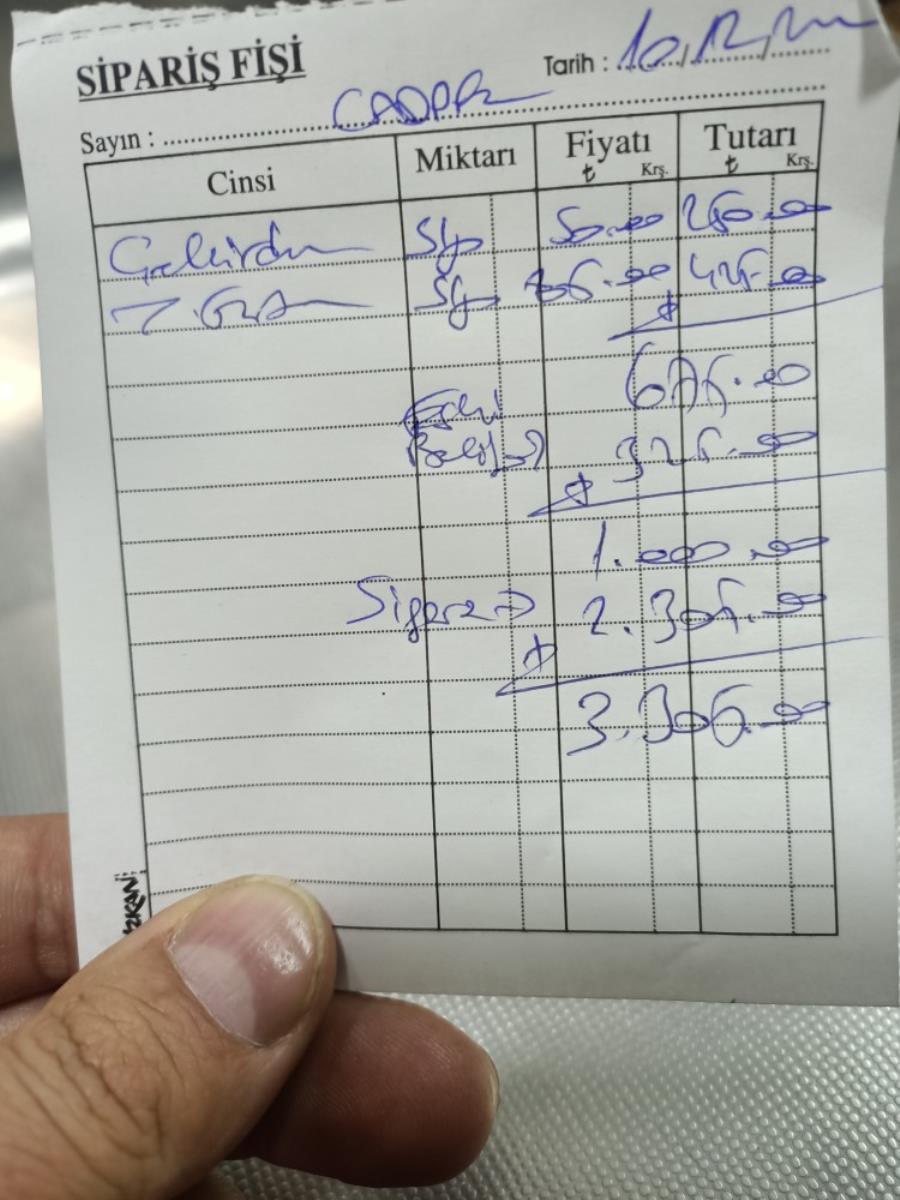 SİPARİŞ FİŞİ
Tarih : 10/12/
Sayın : CADDR
Cinsi Miktarı Fiyatı Tutarı
₺ Krş. ₺ Krş.
Çekirdek 5kg 50.00 250.00
5kg 85.00 425.00
+
675.00
Eski
325.00
+
1.000.00
Sigara → 2.305.00
+
3.305.00